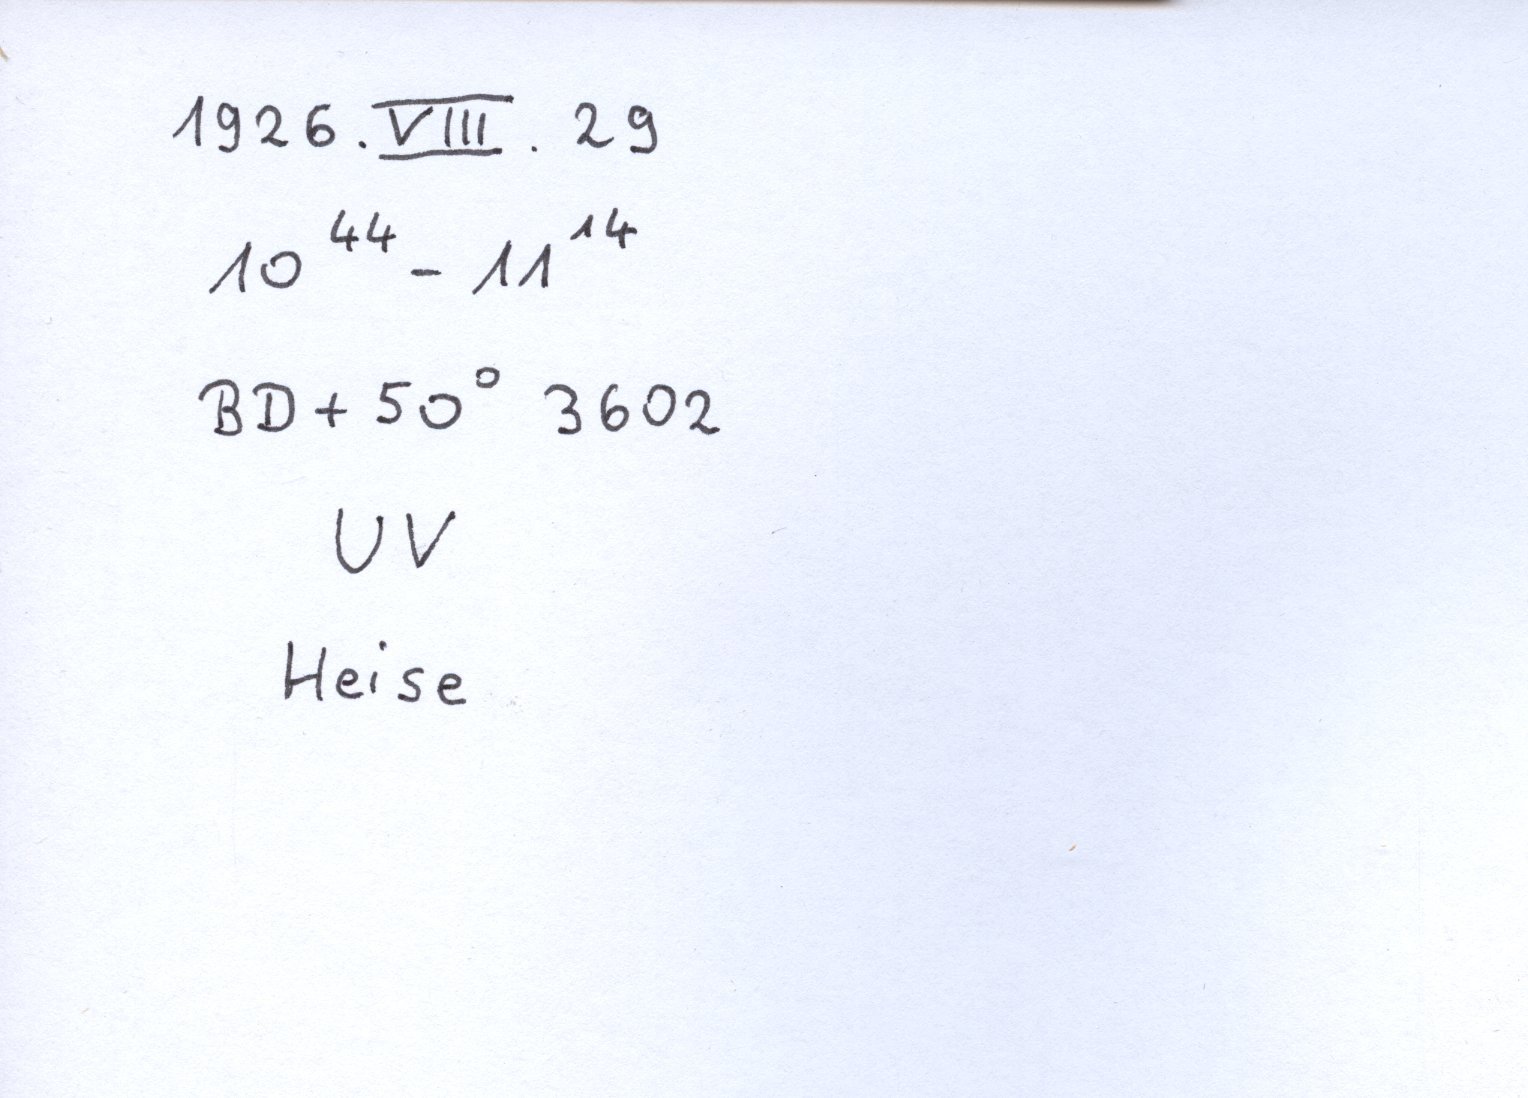 1926.VIII.29
10⁴⁴ - 11¹⁴
BD+50° 3602
UV
Heise